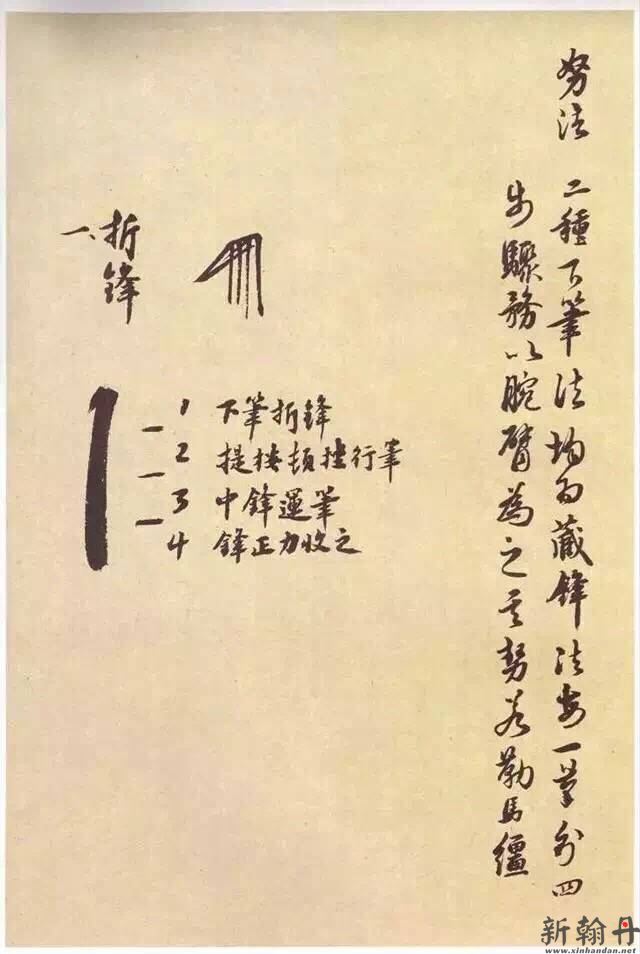 努法
二種下筆法均為藏鋒法每一筆分四
步驟務以腕臂為之其勢若勒馬韁
一、折鋒
1 下筆折鋒
2 提按頓挫行筆
3 中鋒運筆
4 鋒正力收之
新翰丹
www.xinhandan.net